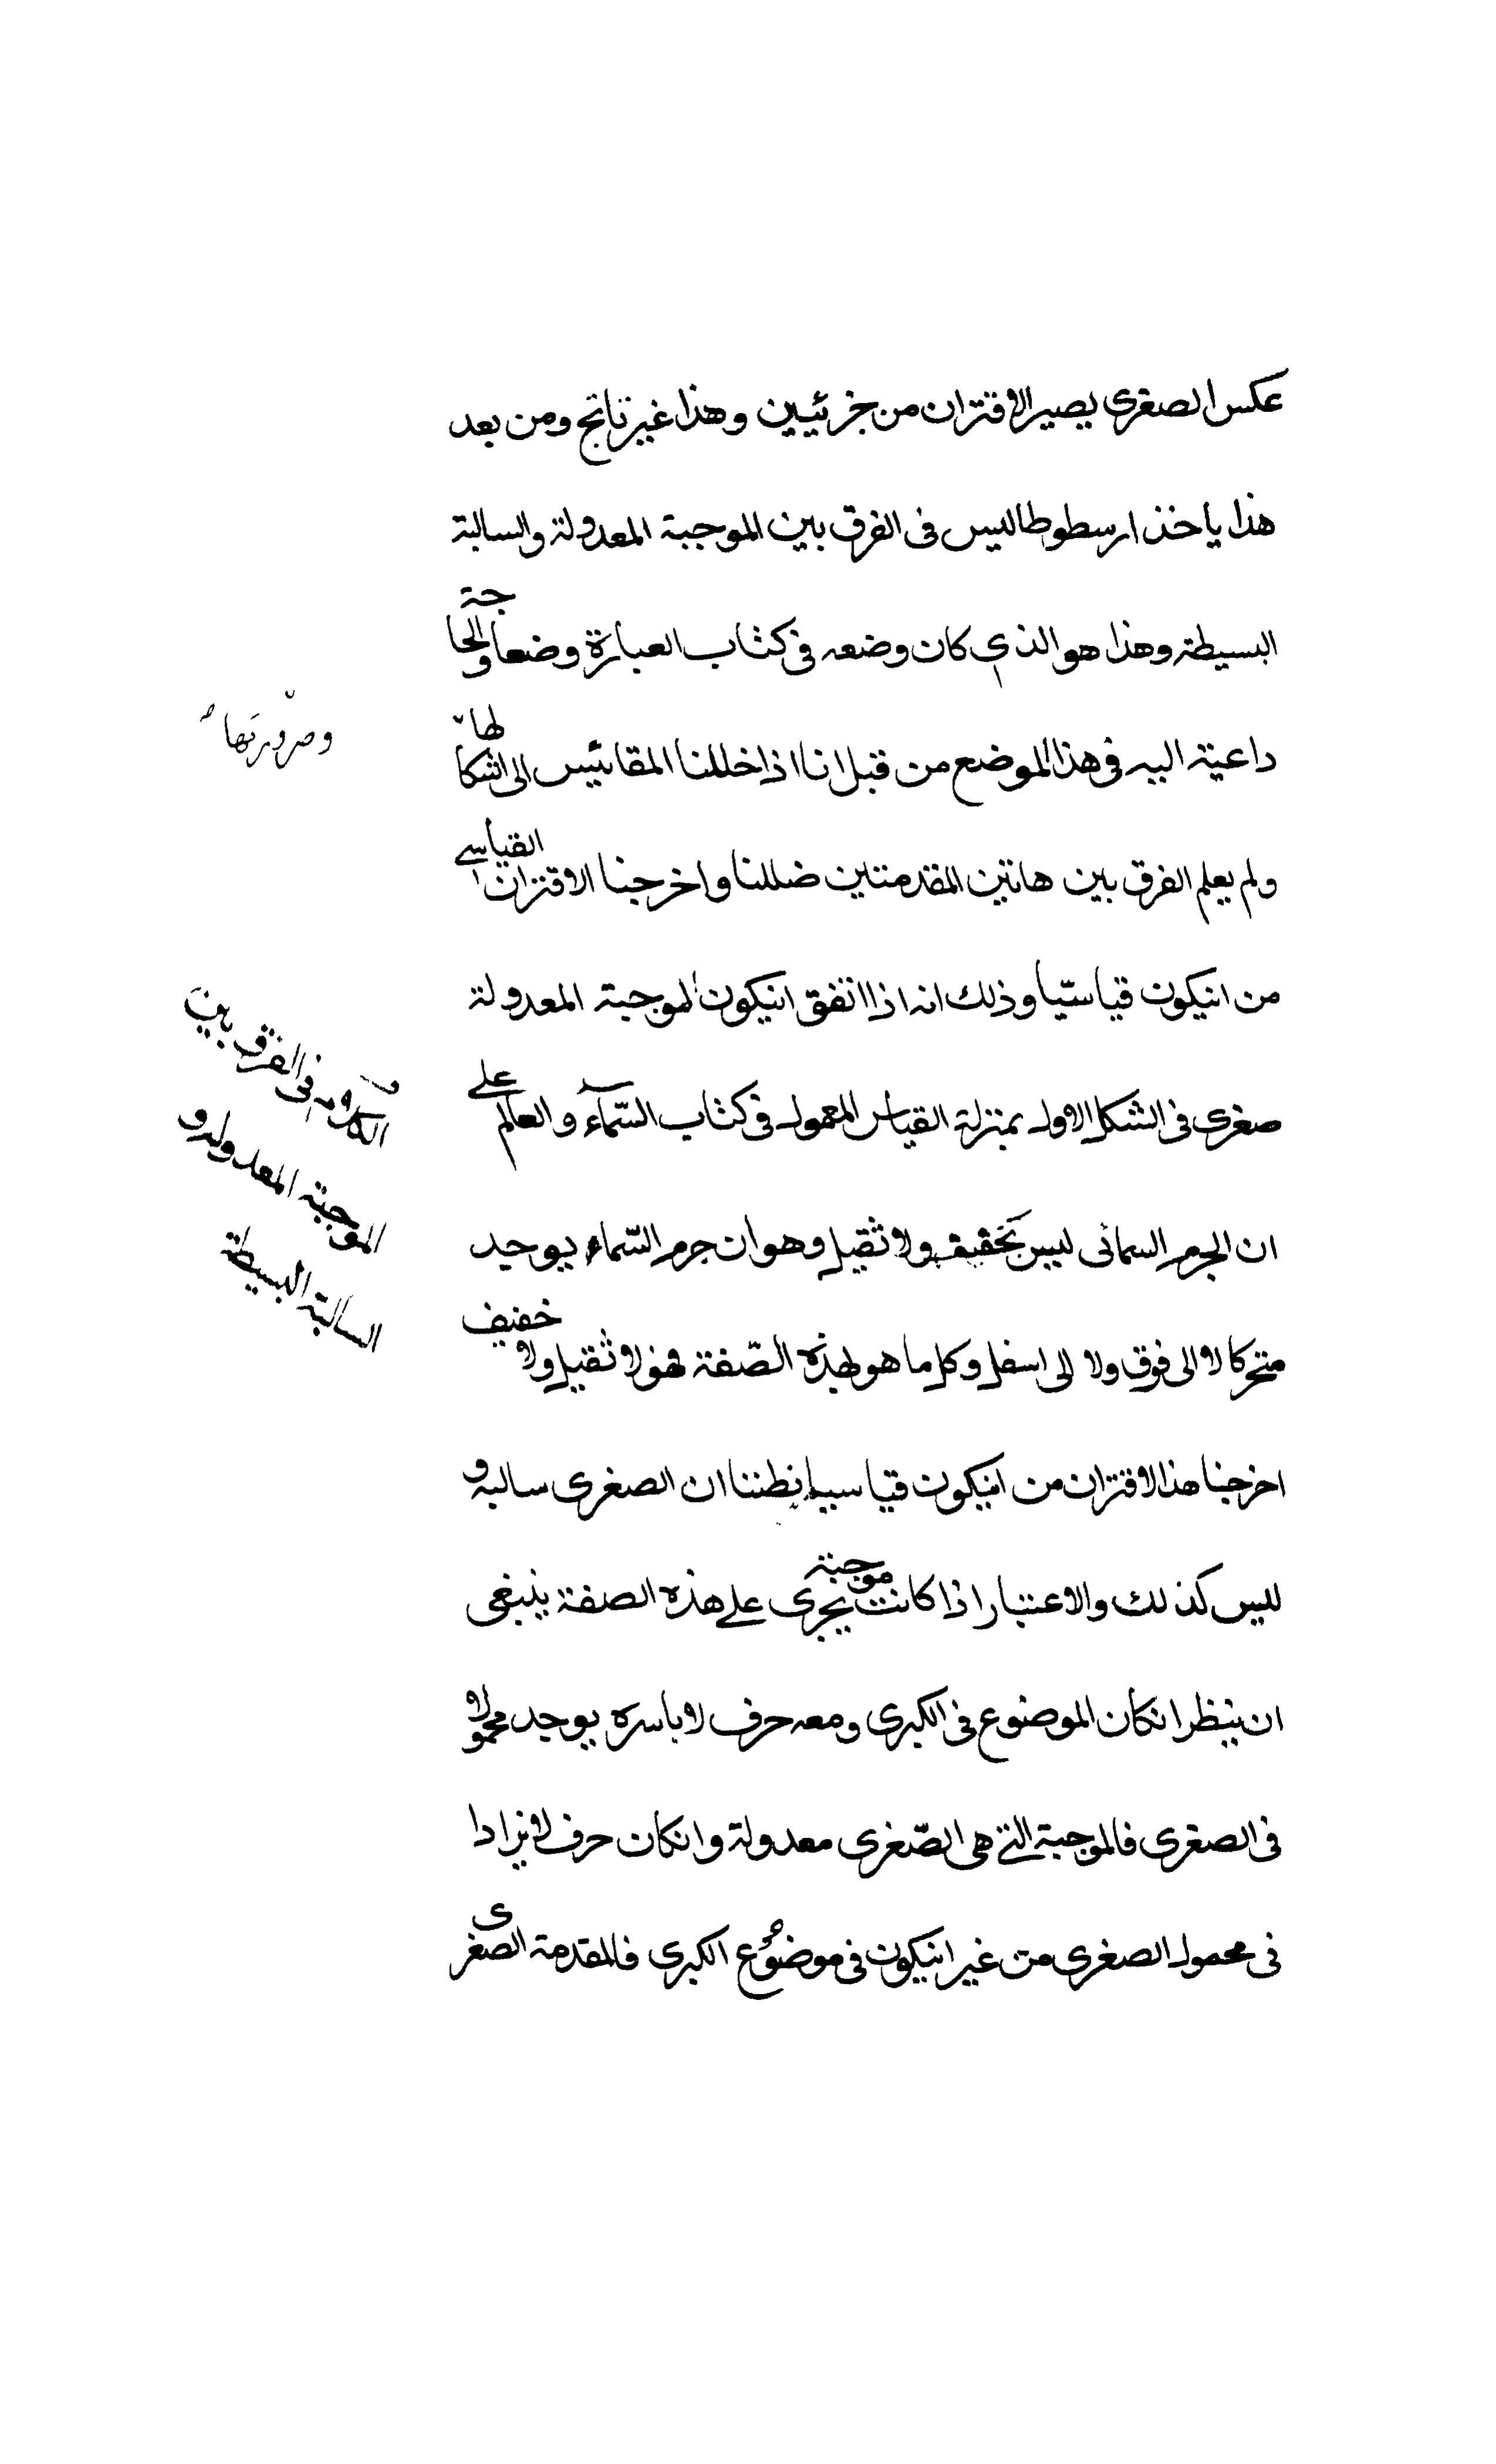 عكس الصغرى يصير الاقتران من جزئيين وهذا غير ناتج ومن بعد
هذا ياخذ ارسطوطاليس فى الفرق بين الموجبة المعدولة والسالبة
البسيطة وهذا هو الذي كان وضعه فى كتاب العبارة وضعا والحاجة
داعية اليه فى هذا الموضع من قبل انا اذا خللنا المقائيس الى اشكالها
وضرورتها
ولم يعلم الفرق بين هاتين المقدمتين ضللنا واخرجنا الاقتران القياسے
من انيكون قياسيّا وذلك انه اذا اتفق انيكون الموجبة المعدولة
صغرى فى الشكل الاول بمنزلة القياس المعمول فى كتاب السّمآء والعالم علے
الكلام فى الفرق بين
الموجبة المعدوله و
السالبة البسيطة
ان الجرم السمائى ليس بخفيف ولا ثقيل وهو ان جرم السّماء يوجد
متحركا لا الى فوق ولا الى اسفل وكل ما هو لهذه الصّفة فهو لا ثقيل ولا خفيف
اخرجنا هذا الاقتران من انيكون قياسيا نظننا ان الصغرى سالبه و
ليس كذلك والاعتبار اذا كانت موجبة يجرى علے هذه الصفة ينبغى
ان ينظر انكان الموضوع فى الكبرى ومعه حرف لا باسره يوجد محمولا
فى الصغرى فالموجبة التے هى الصّغرى معدولة وانكان حرف لا يزادا
فى محمول الصغرى من غير انيكون فى موضوع الكبرى فالمقدمة الصغرى